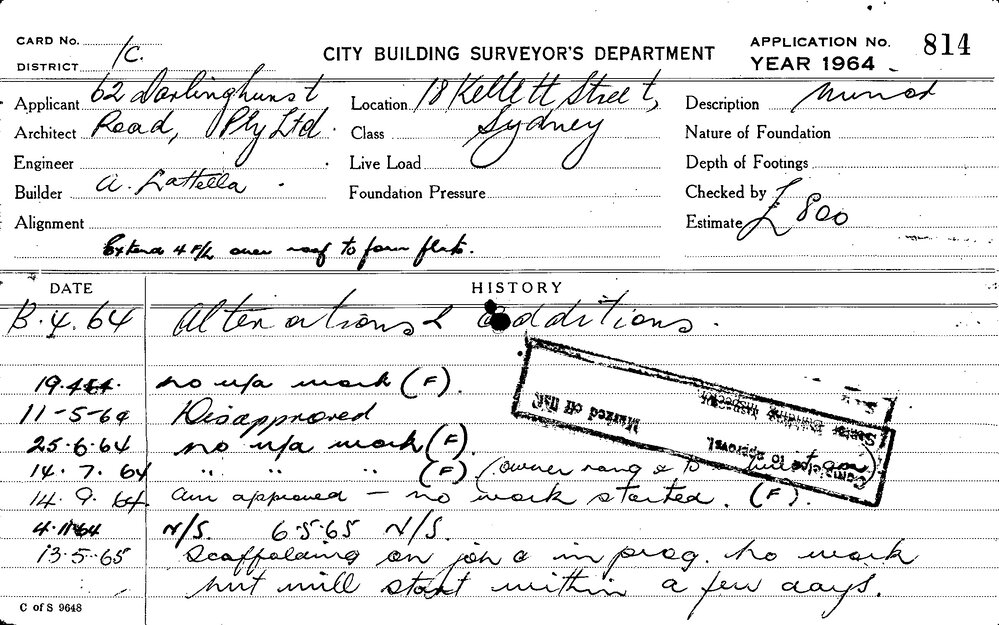 CARD No.
CITY BUILDING SURVEYOR'S DEPARTMENT
APPLICATION No. 814
DISTRICT 1C.
YEAR 1964
Applicant 62 Darlinghurst
Location 18 Kellett Street,
Description Minor
Architect Road, Pty Ltd.
Class Sydney
Nature of Foundation
Engineer
Live Load
Depth of Footings
Builder A. Lattella
Foundation Pressure
Checked by
Alignment
Estimate £800
Extend 4 F/L over roof to form flats.
DATE HISTORY
B.4.64 Alterations & Additions.
19.4.64. no u/a work (F).
11-5-64 Disapproved
25.6.64 no u/a work (F).
14.7.64 " " " (F) (owner rang
14.9.64. am approved — no work started. (F).
4.11.64 N/S. 6.5.65 N/S.
13.5.65 Scaffolding on job & in prog. no work
but will start within a few days.
Completed to approval.
Senior Building Inspector
Marked off list
C of S 9648